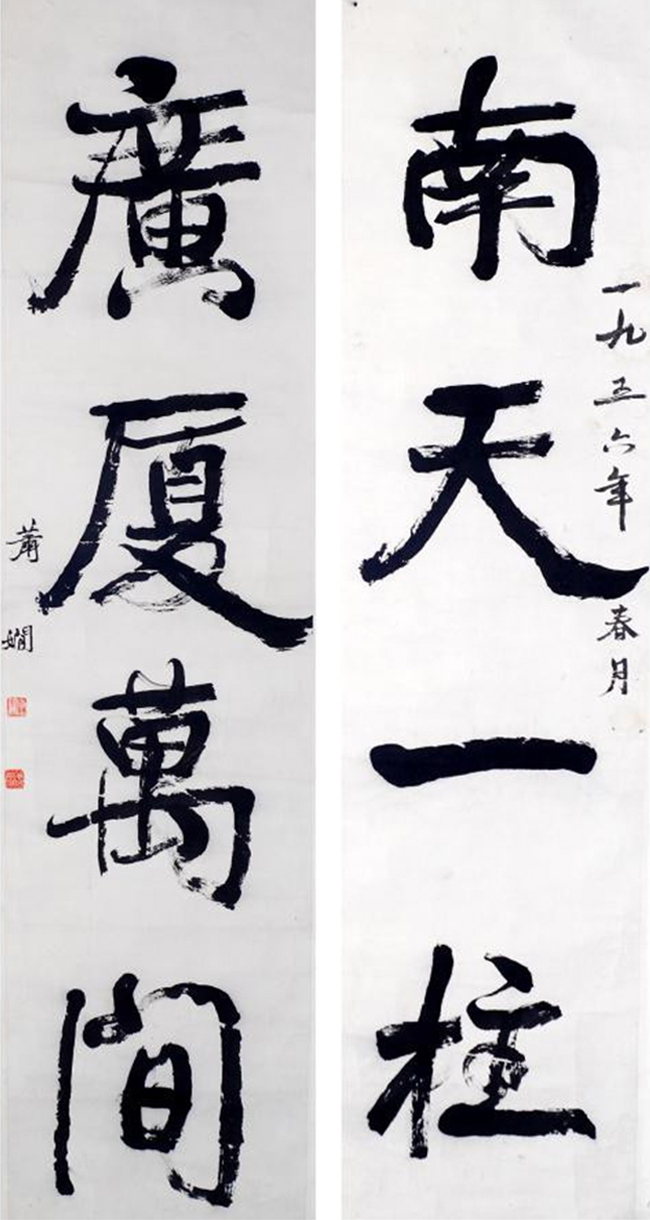 南天一柱
一九五六年春月
廣厦萬間
蕭嫻